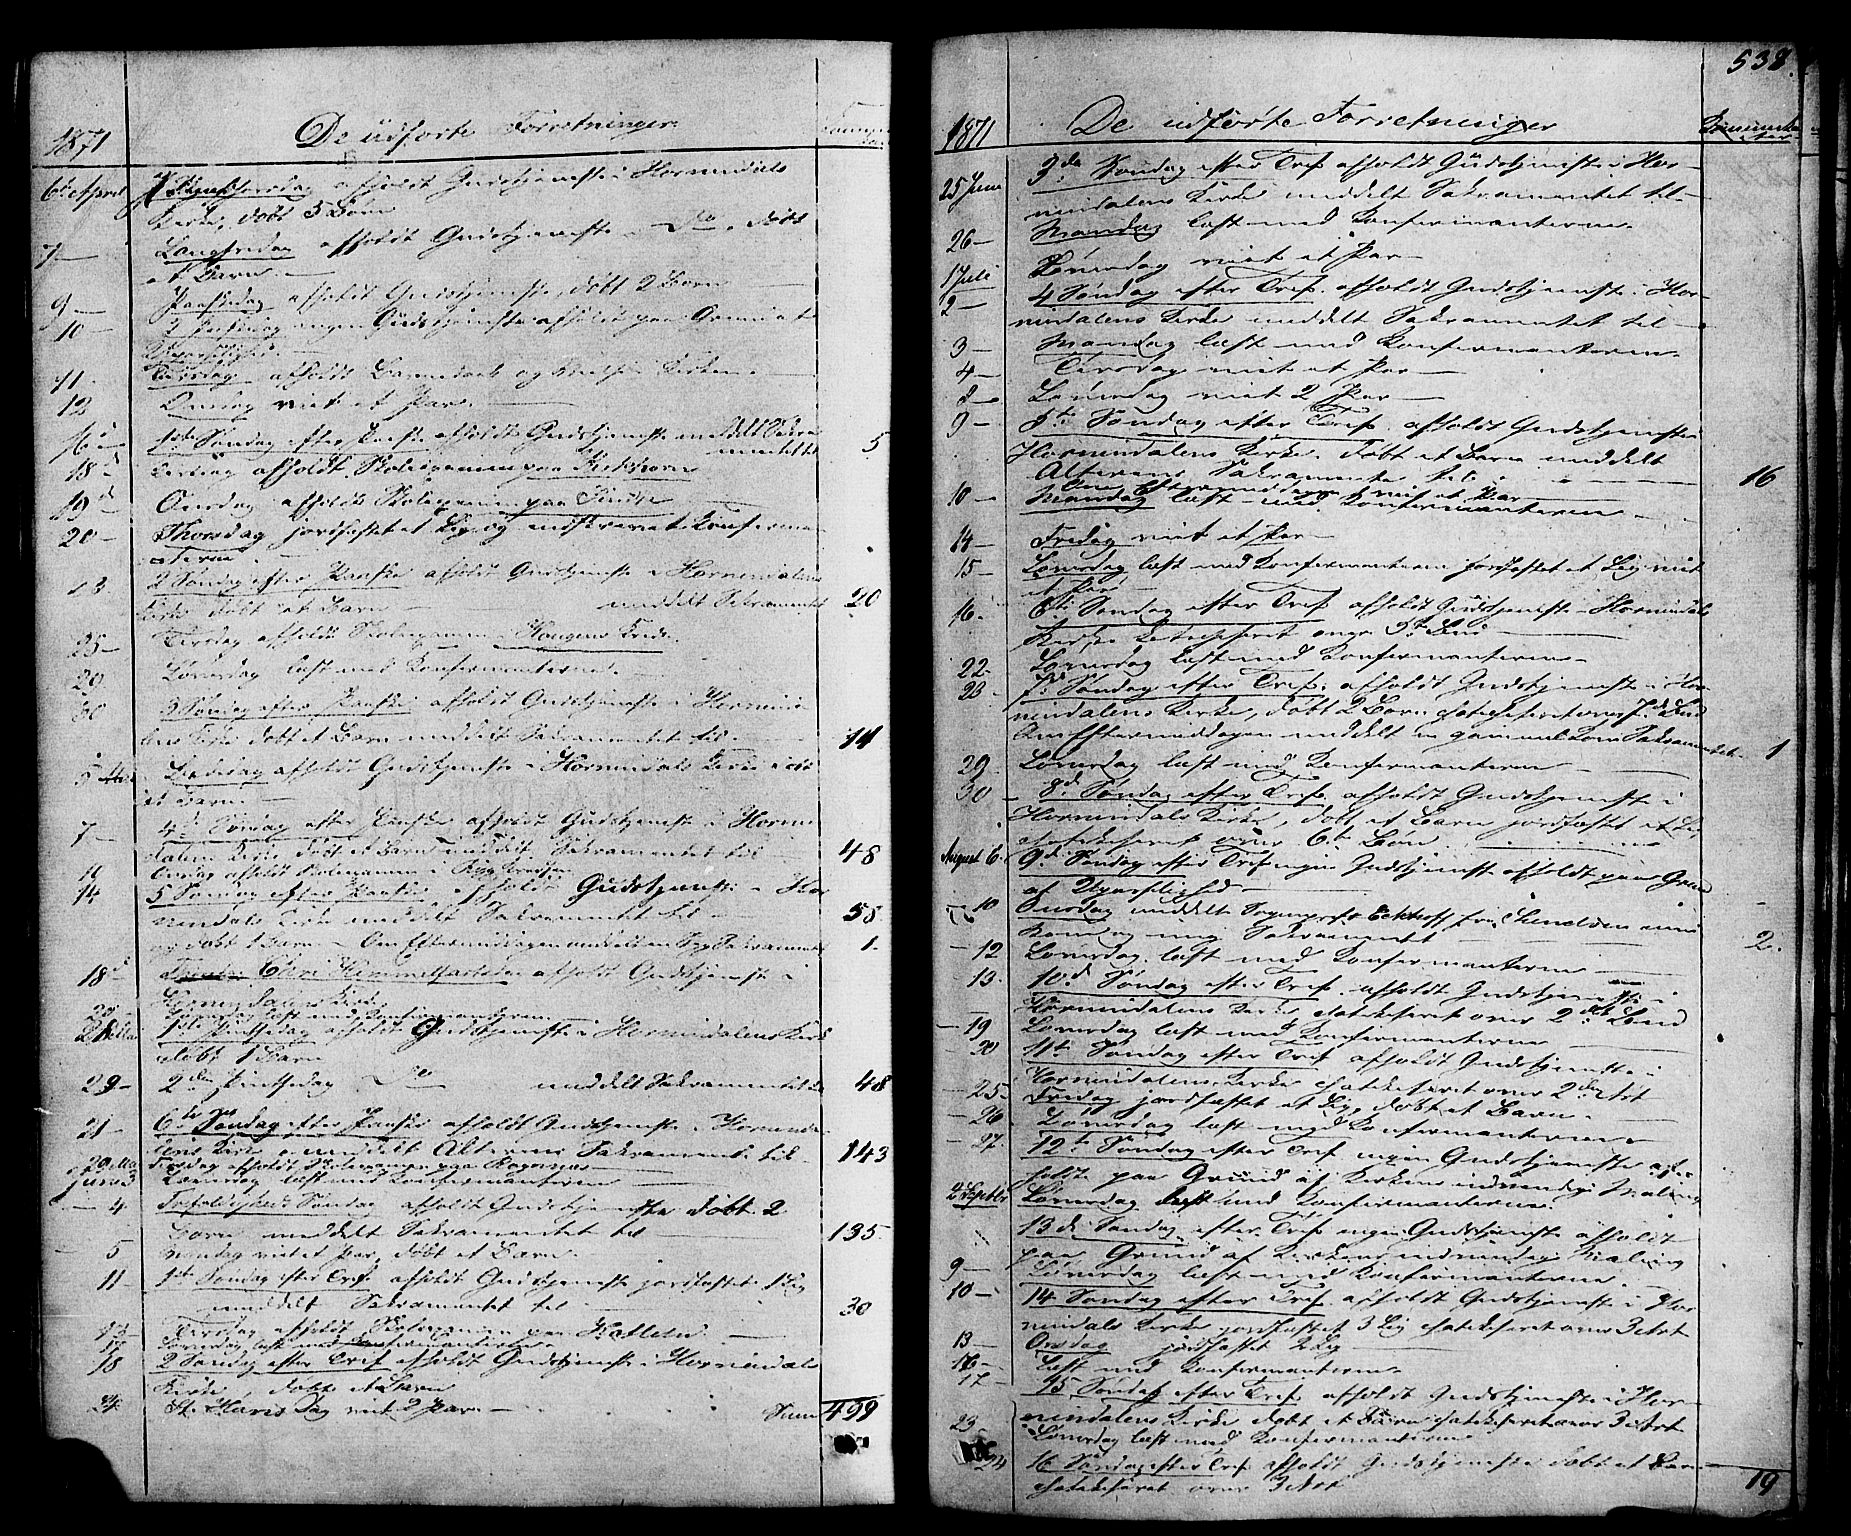 1871
De udførte Forretninger.
6te April Skjærthorsdag afholdt Gudstjeneste i Hornindals
Kirke, døbt 5 Børn
7 — Langfredag afholdt Gudstjeneste i Do, døbt
et Barn. —
9 — Paaskedag afholdt Gudstjeneste, døbt 2 Børn
10 — 2 Paaskedag ingen Gudstjeneste afholdt paa Grund af
Upasselighed. —
11. Tirsdag afholdt
12 Onsdag viet et Par. —
16 1ste Søndag efter Paaske afholdt Gudstjeneste meddelt Sakra
mentet til 5
18 Tirsdag afholdt Skoleexamen paa Kirkhorn
19d Onsdag afholdt Skoleexamen paa
20 — Thorsdag jordfæstet et Lig og indskrevet Konferman
terne. —
23 2 Søndag efter Paaske afholdt Gudstjeneste i Hornindalens
Kirke døbt et Barn — meddelt Sakramentet 20
25 — Tirsdag afholdt Skoleexamen i Haugens Kreds.
29 Løverdag læst med Konfermanterne. —
30 3 Søndag efter Paaske afholdt Gudstjeneste i Hornind
lens Kirke døbt et Barn meddelt Sakramentet til — 14
5 Bededag afholdt Gudstjeneste i Hornindals Kirke
et Barn. —
7 — 4de Søndag efter Paaske afholdt Gudstjeneste i Hornin
dalens Kirke døbt et Barn meddelt Sakramentet til — 48
Onsdag afholdt Skoleexamen i
14 5 Søndag efter Paaske afholdt Gudstjeneste i Hor
nindals Kirke meddelt Sakramentet til — 58
og døbt 1 Barn — Om Eftermiddagen meddelt en Syg Sakramentet 1.
18d Christi Himmelfartsdag afholdt Gudstjeneste i
Hornindalens Kirke
20 — Løverdag læst med Konfermanterne
1ste Pintsedag afholdt Gudstjeneste i Hornindalens Kirke
døbt 1 Barn
29 — 2den Pintsedag Do meddelt Sakramentet til 48
21 — 6te Søndag efter Paaske afholdt Gudstjeneste i Horninda
lens Kirke meddelt Alterens Sakramente til 143
Tirsdag afholdt Skoleexamen paa
Juni 3 Løverdag læst med Konfermanterne —
— 4 Trefoldigheds Søndag afholdt Gudstjeneste døbt 2
Børn meddelt Sakramentet til — 135
— 5 Mandag viet et Par, døbt et Barn.
11 — 1ste Søndag efter Tref. afholdt Gudstjeneste jordfæstet 1 Lig
meddelt Sakramentet til — 30
13 — Tirsdag afholdt Skoleexamen paa
17 Løverdag læst med Konfermanterne
18 2 Søndag efter Tref afholdt Gudstjeneste i Hornindals
Kirke, døbt et Barn
24 St. Hans Dag viet 2 Par. — Sum 499
538.
1871 De udførte Forretninger
25 Juni 3de Søndag efter Tref. afholdt Gudstjeneste i Hor-
nindalens Kirke meddelt Sakramentet til —
26 — Mandag læst med Konfermanterne.
1 Juli Løverdag viet et Par —
2 — 4 Søndag efter Tref. afholdt Gudstjeneste i Hor-
nindalens Kirke meddelt Sakramentet til —
3 — Mandag læst med Konfermanterne.
4 — Tirsdag viet et Par —
8 — Løverdag viet 2 Par —
9 — 5te Søndag efter Tref. afholdt Gudstjeneste i
Hornindalens Kirke, døbt et Barn meddelt
Alterens Sakramente til — 16
Om Eftermiddagen viet et Par —
10 — Mandag læst med Konfermanterne
14 — Fredag viet et Par —
15 — Løverdag læst med Konfermanterne jordfæstet et Lig viet
et Par —
16. 6te Søndag efter Tref. afholdt Gudstjeneste i Hornindals
Kirke katekiseret over 5te Bud —
22 — Løverdag læst med Konfermanterne —
23 — 7de Søndag efter Tref. afholdt Gudstjeneste i Hor-
nindalens Kirke, døbt 2 Børn katekiseret over 7de Bud
Om Eftermiddagen meddelt en gammel Kone Sakramentet. 1
29. Løverdag læst med Konfermanterne —
30 — 8de Søndag efter Tref. afholdt Gudstjeneste i
Hornindals Kirke, døbt et Barn jordfæstet et Lig
katekiseret over 6te Bøn. —
August 6. 9de Søndag efter Tref ingen Gudstjeneste afholdt paa Grund
af Upasselighed —
10 Onsdag meddelt
Kone og mig Sakramentet — 2.
— 12 Løverdag læst med Konfermanterne —
13. 10d Søndag efter Tref. afholdt Gudstjeneste i
Hornindalens Kirke katekiseret over 2det Bud
— 19 Løverdag læst med Konfermanterne —
— 20 11te Søndag efter Tref afholdt Gudstjeneste i
Hornindalens Kirke katekiseret over 2den Art
— 25 Fredag jordfæstet et Lig, døbt et Barn.
— 26. Løverdag læst med Konfermanterne
— 27. 12te Søndag efter Tref ingen Gudstjeneste af-
holdt paa Grund af Kirkens indvendige Maling
2 Septbr Løverdag læst med Konfermanterne.
13de Søndag efter Tref. ingen Gudstjeneste afholdt
paa Grund af Kirkens indvendige Maling
9 — Løverdag læst med Konfermanterne.
10 — 14 Søndag efter Tref. afholdt Gudstjeneste i Hor
nindals Kirke jordfæstet 3 Lig katekiseret over 3 Art
13 — Onsdag jordfæstet 2 Lig —
16 — Læst med Konfermanterne
17 — 15 Søndag efter Tref afholdt Gudstjeneste i Hor
nindalens Kirke døbt et Barn katekiseret over 3 Art
23 Løverdag læst med Konfermanterne
24 16 Søndag efter Tref afholdt Gudstjeneste døbt et Barn
katekiseret over 3 Art 19